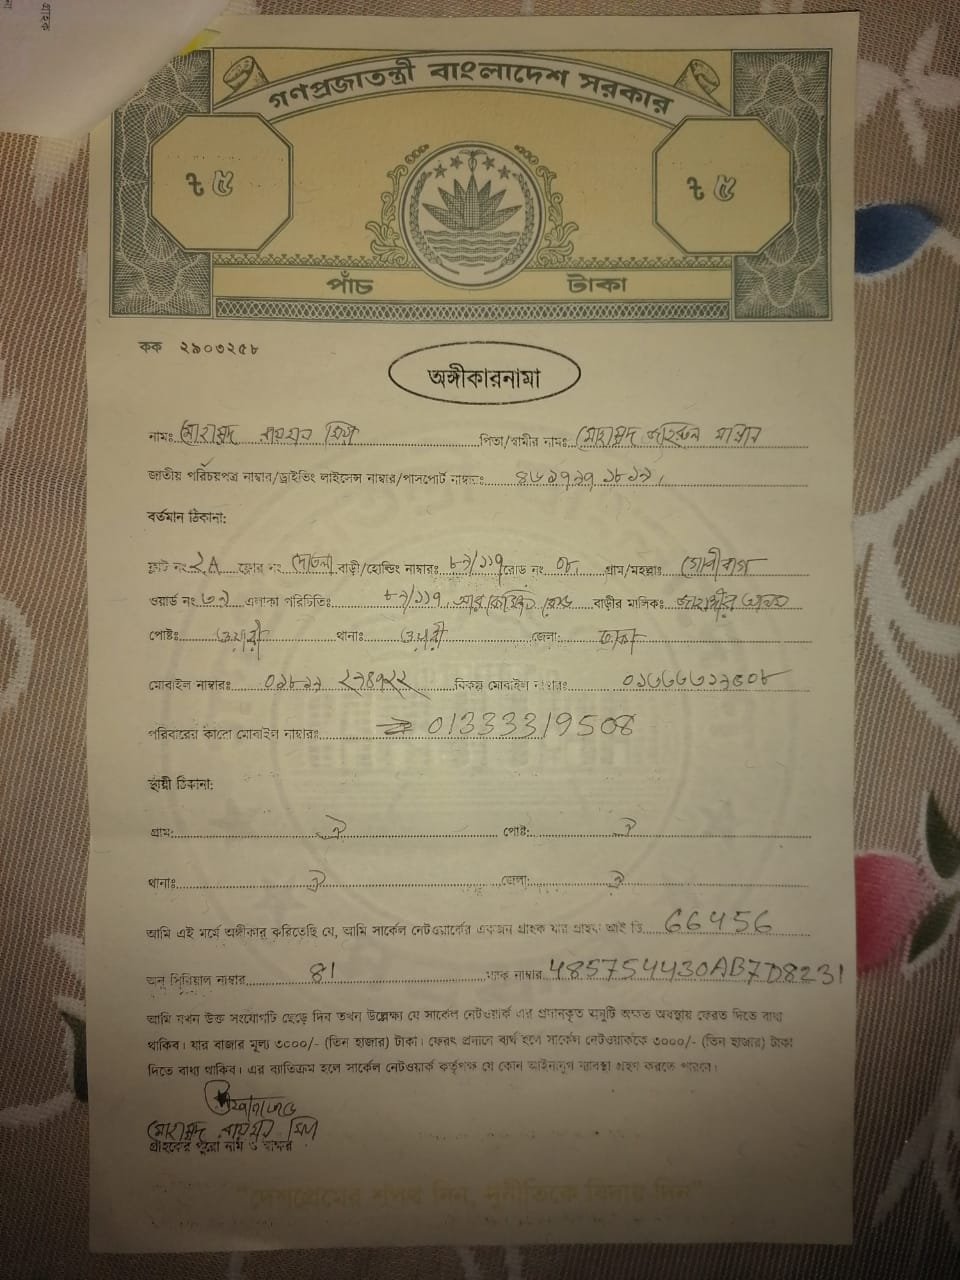 গণপ্রজাতন্ত্রী বাংলাদেশ সরকার
৳ ৫ ৳ ৫
পাঁচ টাকা
কক ২৯০৩২৫৮
অঙ্গীকারনামা
নামঃ মোহাম্মদ পিতা/স্বামীর নামঃ মোহাম্মদ
জাতীয় পরিচয়পত্র নাম্বার/ড্রাইভিং লাইসেন্স নাম্বার/পাসপোর্ট নাম্বারঃ
বর্তমান ঠিকানা:
ফ্লাট নং ২A ফ্লোর নং দোতলা বাড়ী/হোল্ডিং নাম্বারঃ রোড নং গ্রাম/মহল্লাঃ গোপীবাগ
ওয়ার্ড নং ৩৯ এলাকা পরিচিতিঃ বাড়ীর মালিকঃ জাহাঙ্গীর আলম
পোষ্টঃ ওয়ারী থানাঃ ওয়ারী জেলা: ঢাকা
মোবাইল নাম্বারঃ বিকল্প মোবাইল নাম্বারঃ
পরিবারের কারো মোবাইল নাম্বারঃ 01333319508
স্থায়ী ঠিকানা:
গ্রাম: ঐ পোষ্ট: ঐ
থানাঃ ঐ জেলা: ঐ
আমি এই মর্মে অঙ্গীকার করিতেছি যে, আমি সার্কেল নেটওয়ার্কের একজন গ্রাহক যার গ্রাহক আই ডি 66456
অনু সিরিয়াল নাম্বার 81 ম্যাক নাম্বার 485754430AB7D8231
আমি যখন উক্ত সংযোগটি ছেড়ে দিব তখন উল্লেক্ষ্য যে সার্কেল নেটওয়ার্ক এর প্রদানকৃত অনুটি অক্ষত অবস্থায় ফেরত দিতে বাধ্য
থাকিব। যার বাজার মূল্য ৩০০০/- (তিন হাজার) টাকা। ফেরৎ প্রদানে ব্যর্থ হলে সার্কেল নেটওয়ার্ককে ৩০০০/- (তিন হাজার) টাকা
দিতে বাধ্য থাকিব। এর ব্যাতিক্রম হলে সার্কেল নেটওয়ার্ক কর্তৃপক্ষ যে কোন আইনানুগ ব্যবস্থা গ্রহণ করতে পারবে।
মোহাম্মদ
গ্রাহকের পুরো নাম ও স্বাক্ষর
"দেশপ্রেমের শপথ নিন, দুর্নীতিকে বিদায় দিন"